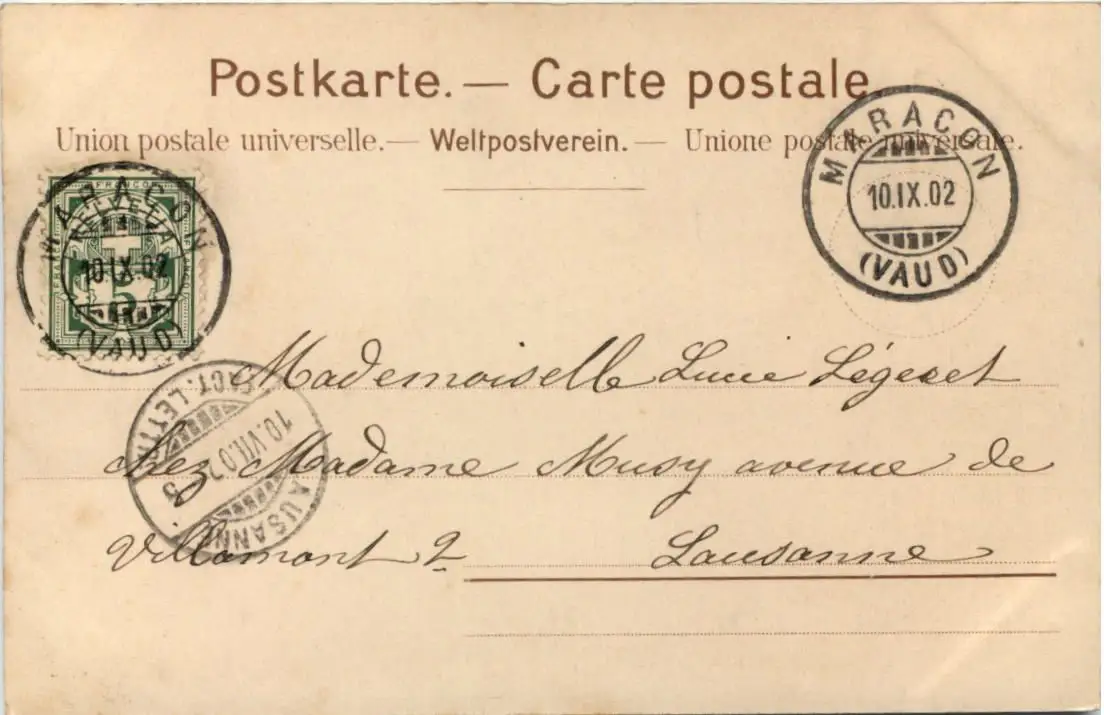 Postkarte. — Carte postale.
Union postale universelle. — Weltpostverein. — Unione postale universale.
MARACON
10.IX.02
(VAUD)
FRANCO
HELVETIA
5
MARACON
10.IX.02
(VAUD)
Mademoiselle Lucie Légeret
chez Madame Musy avenue de
Villamont 2 Lausanne
FACT. LETTR.
10.VII.02
LAUSANNE